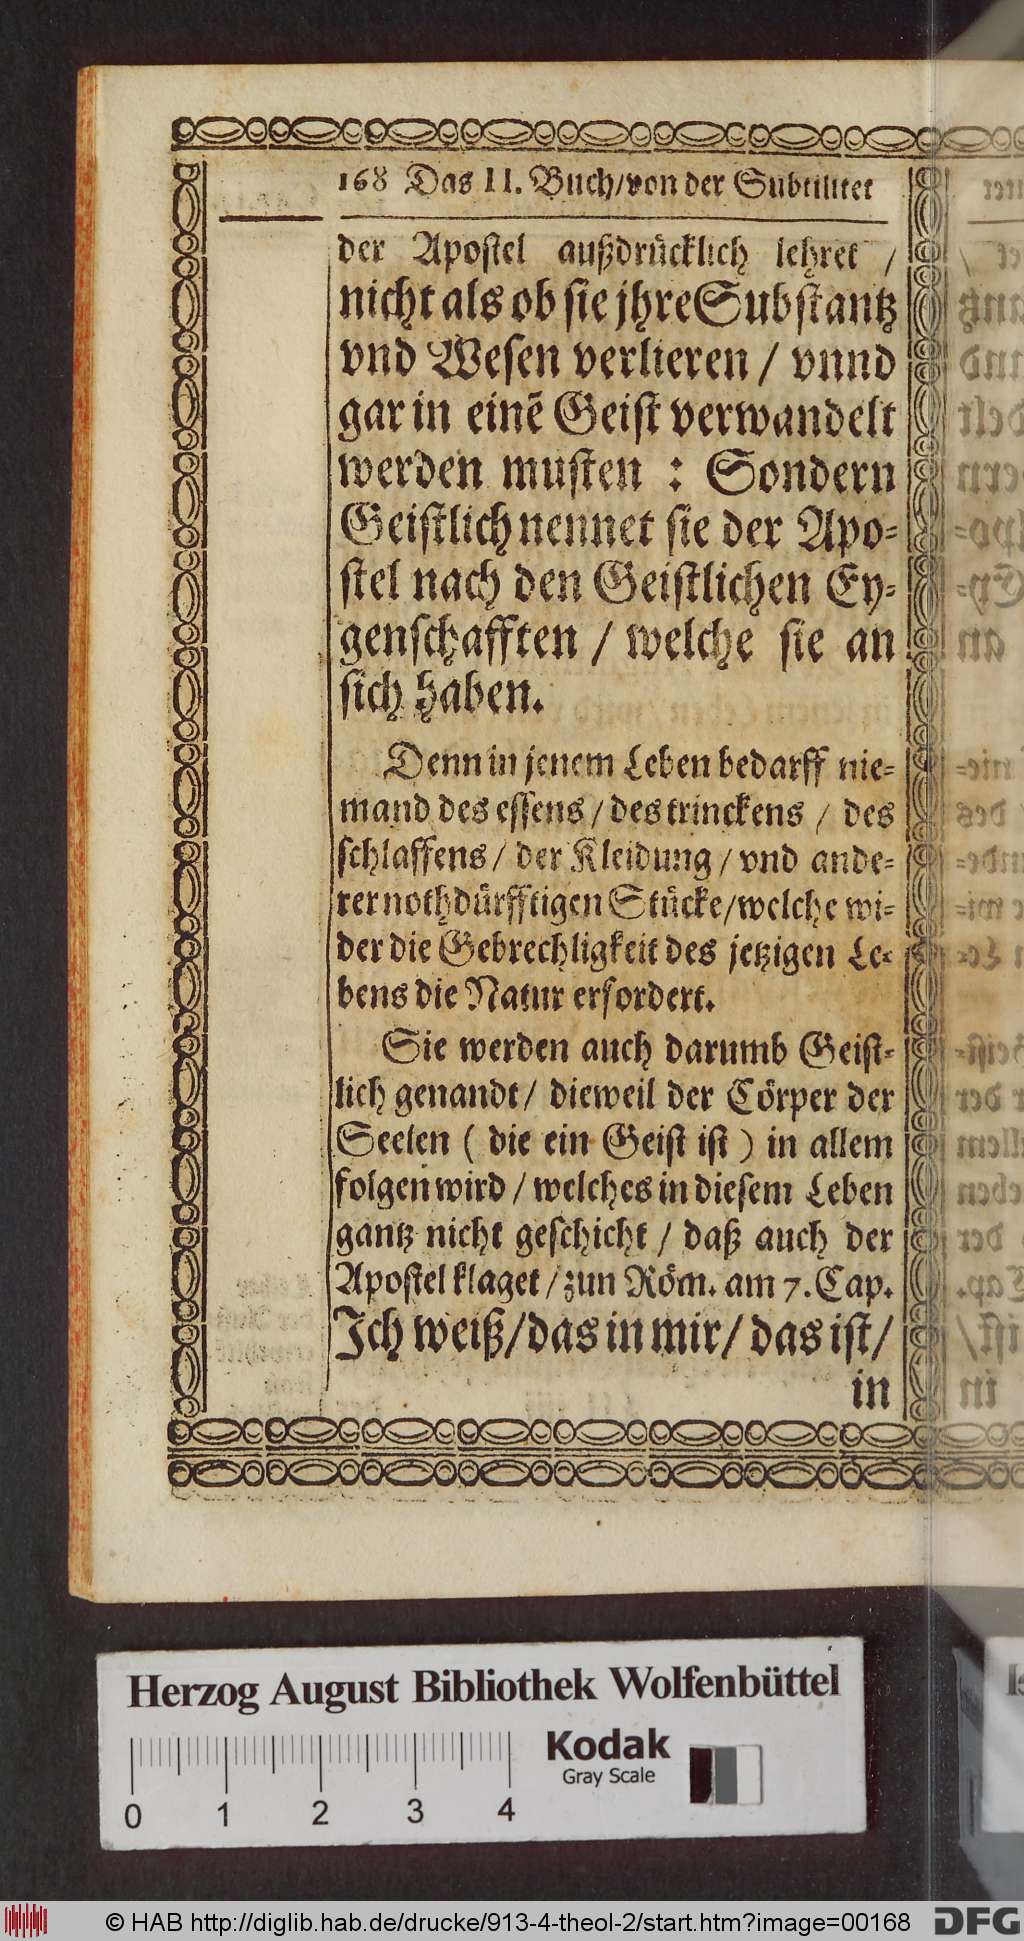 168 Das II. Buch/von der Subtilitet
der Apostel außdrücklich lehret /
nicht als ob sie jhre Substantz
vnd Wesen verlieren / vnnd
gar in einē Geist verwandelt
werden musten : Sondern
Geistlich nennet sie der Apo-
stel nach den Geistlichen Ey-
genschafften / welche sie an
sich haben.
Denn in jenem Leben bedarff nie-
mand des essens / des trinckens / des
schlaffens / der Kleidung / vnd ande-
rer nothdürfftigen Stücke/welche wi-
der die Gebrechligkeit des jetzigen Le-
bens die Natur erfordert.
Sie werden auch darumb Geist-
lich genandt / dieweil der Cörper der
Seelen ( die ein Geist ist ) in allem
folgen wird / welches in diesem Leben
gantz nicht geschicht / daß auch der
Apostel klaget / zun Röm. am 7. Cap.
Jch weiß/das in mir/ das ist/
in
Herzog August Bibliothek Wolfenbüttel
Kodak
Gray Scale
0 1 2 3 4
© HAB http://diglib.hab.de/drucke/913-4-theol-2/start.htm?image=00168
DFG